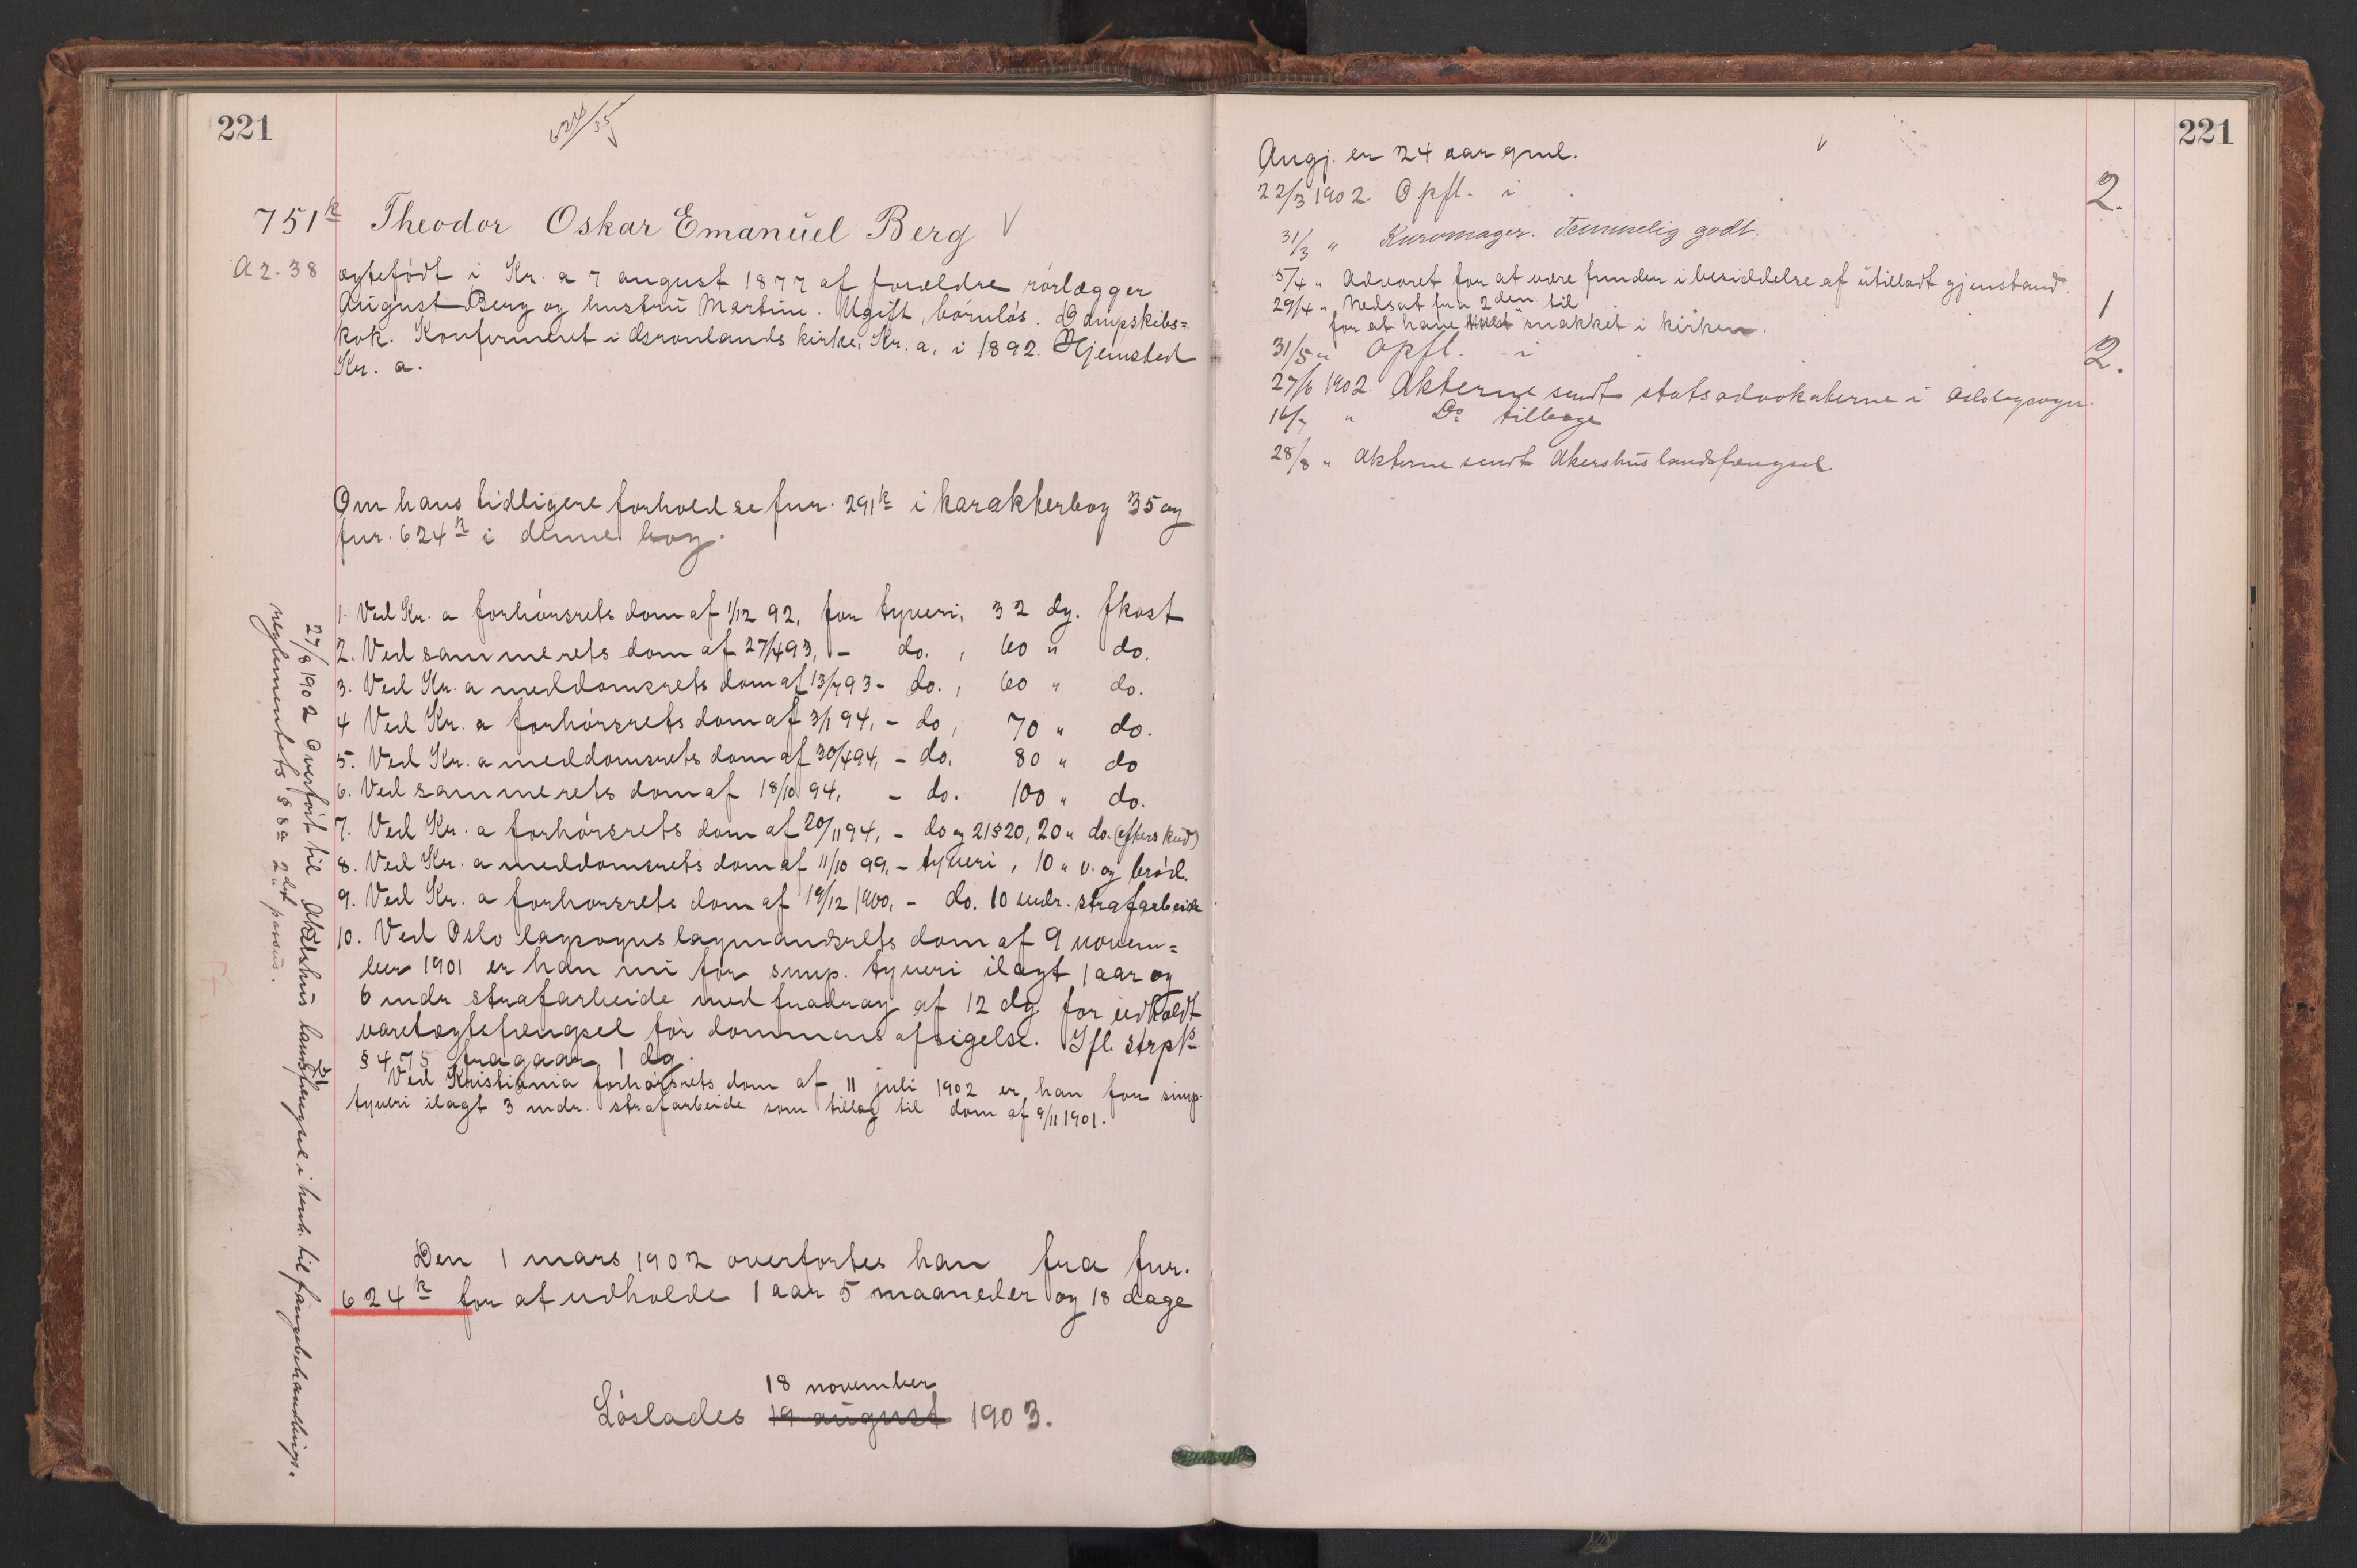 221
624/35
751k Theodor Oskar Emanuel Berg V
A 2.38
ægtefødt i Kr.a 7 august 1877 af forældre rørlægger
August Berg og hustru Martine. Ugift, barnløs. Dampskibs=
kok. Konfirmeret i Grønlands kirke, Kr.a, i 1892. Hjemsted
Kr. a.
Om hans tidligere forhold se fnr. 291k i karakterbog 35 og
fnr. 624k i denne bog.
1. Ved Kr.a forhørsrets dom af 1/12 92, for tyveri, 32 dg. fkost
2. Ved samme rets dom af 27/4 93, - do. , 60 " do.
3. Ved Kr.a meddomsrets dom af 13/7 93 - do. , 60 " do.
4 Ved Kr.a forhørsrets dom af 3/1 94, - do , 70 " do.
5. Ved Kr.a meddomsrets dom af 30/4 94, - do. 80 " do
6. Ved samme rets dom af 18/10 94, - do. 100 " do.
7. Ved Kr.a forhørsrets dom af 20/11 94, - do og 21 § 20, 20 " do. (efterskud)
8. Ved Kr.a meddomsrets dom af 11/10 99, - tyveri, 10 " v. og brød.
9. Ved Kr.a forhørsrets dom af 19/12 1900, - do. 10 mdr. strafarbeide
10. Ved Oslo lagsogns lagmandsrets dom af 9 novem=
ber 1901 er han nu for simp. tyveri ilagt 1 aar og
6 mdr strafarbeide med fradrag af 12 dg for udholdt
varetægtsfængsel før dommens afsigelse. Ifl. strpl.
§ 475 fragaar 1 dg.
Ved Kristiania forhørsrets dom af 11 juli 1902 er han for simp.
tyveri ilagt 3 mdr. strafarbeide som tillæg til dom af 9/11 1901.
Den 1 mars 1902 overførtes han fra fnr.
624k for at udholde 1 aar 5 maaneder og 18 dage
18 november
Løslades 19 august 1903.
27/8 1902 Overført til Akershus landsfængsel i henh. til fangebehandlings=
reglementets § 8a 2det passus.
221
Angj. er 24 aar gml. V
22/3 1902. Opfl. i 2.
31/3 " Kurvmager. Temmelig godt.
5/4 " Advaret for at være funden i besiddelse af utilladt gjenstand.
29/4 " Nedsat fra 2den til 1
for at have snakket i kirken.
31/5 " Opfl. i 2.
27/6 1902. Akterne sendt statsadvokaterne i Oslo lagsogn.
16/7 " Do tilbage
28/8 " Akterne sendt Akershus landsfængsel